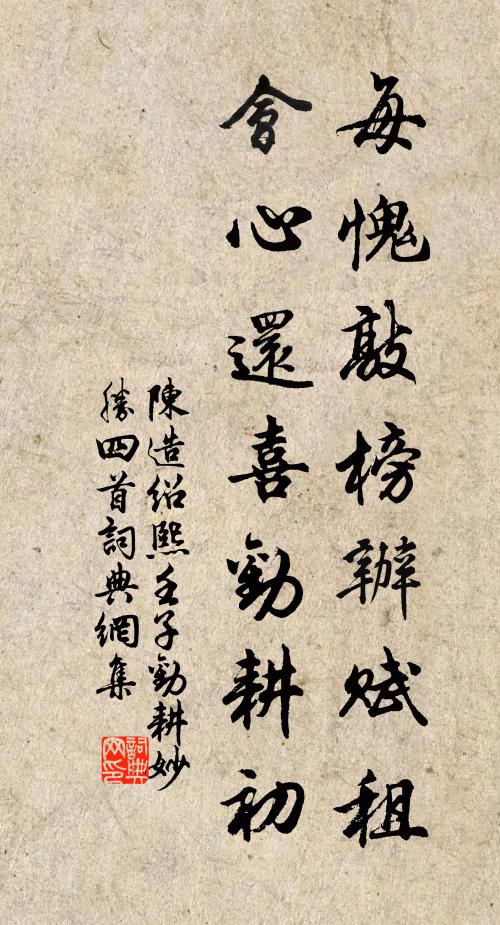 每愧敲榜辦賦租
會心還喜勸耕初
陳造紹熙壬子勸耕妙
勝四首詞典網集
詞典
网印